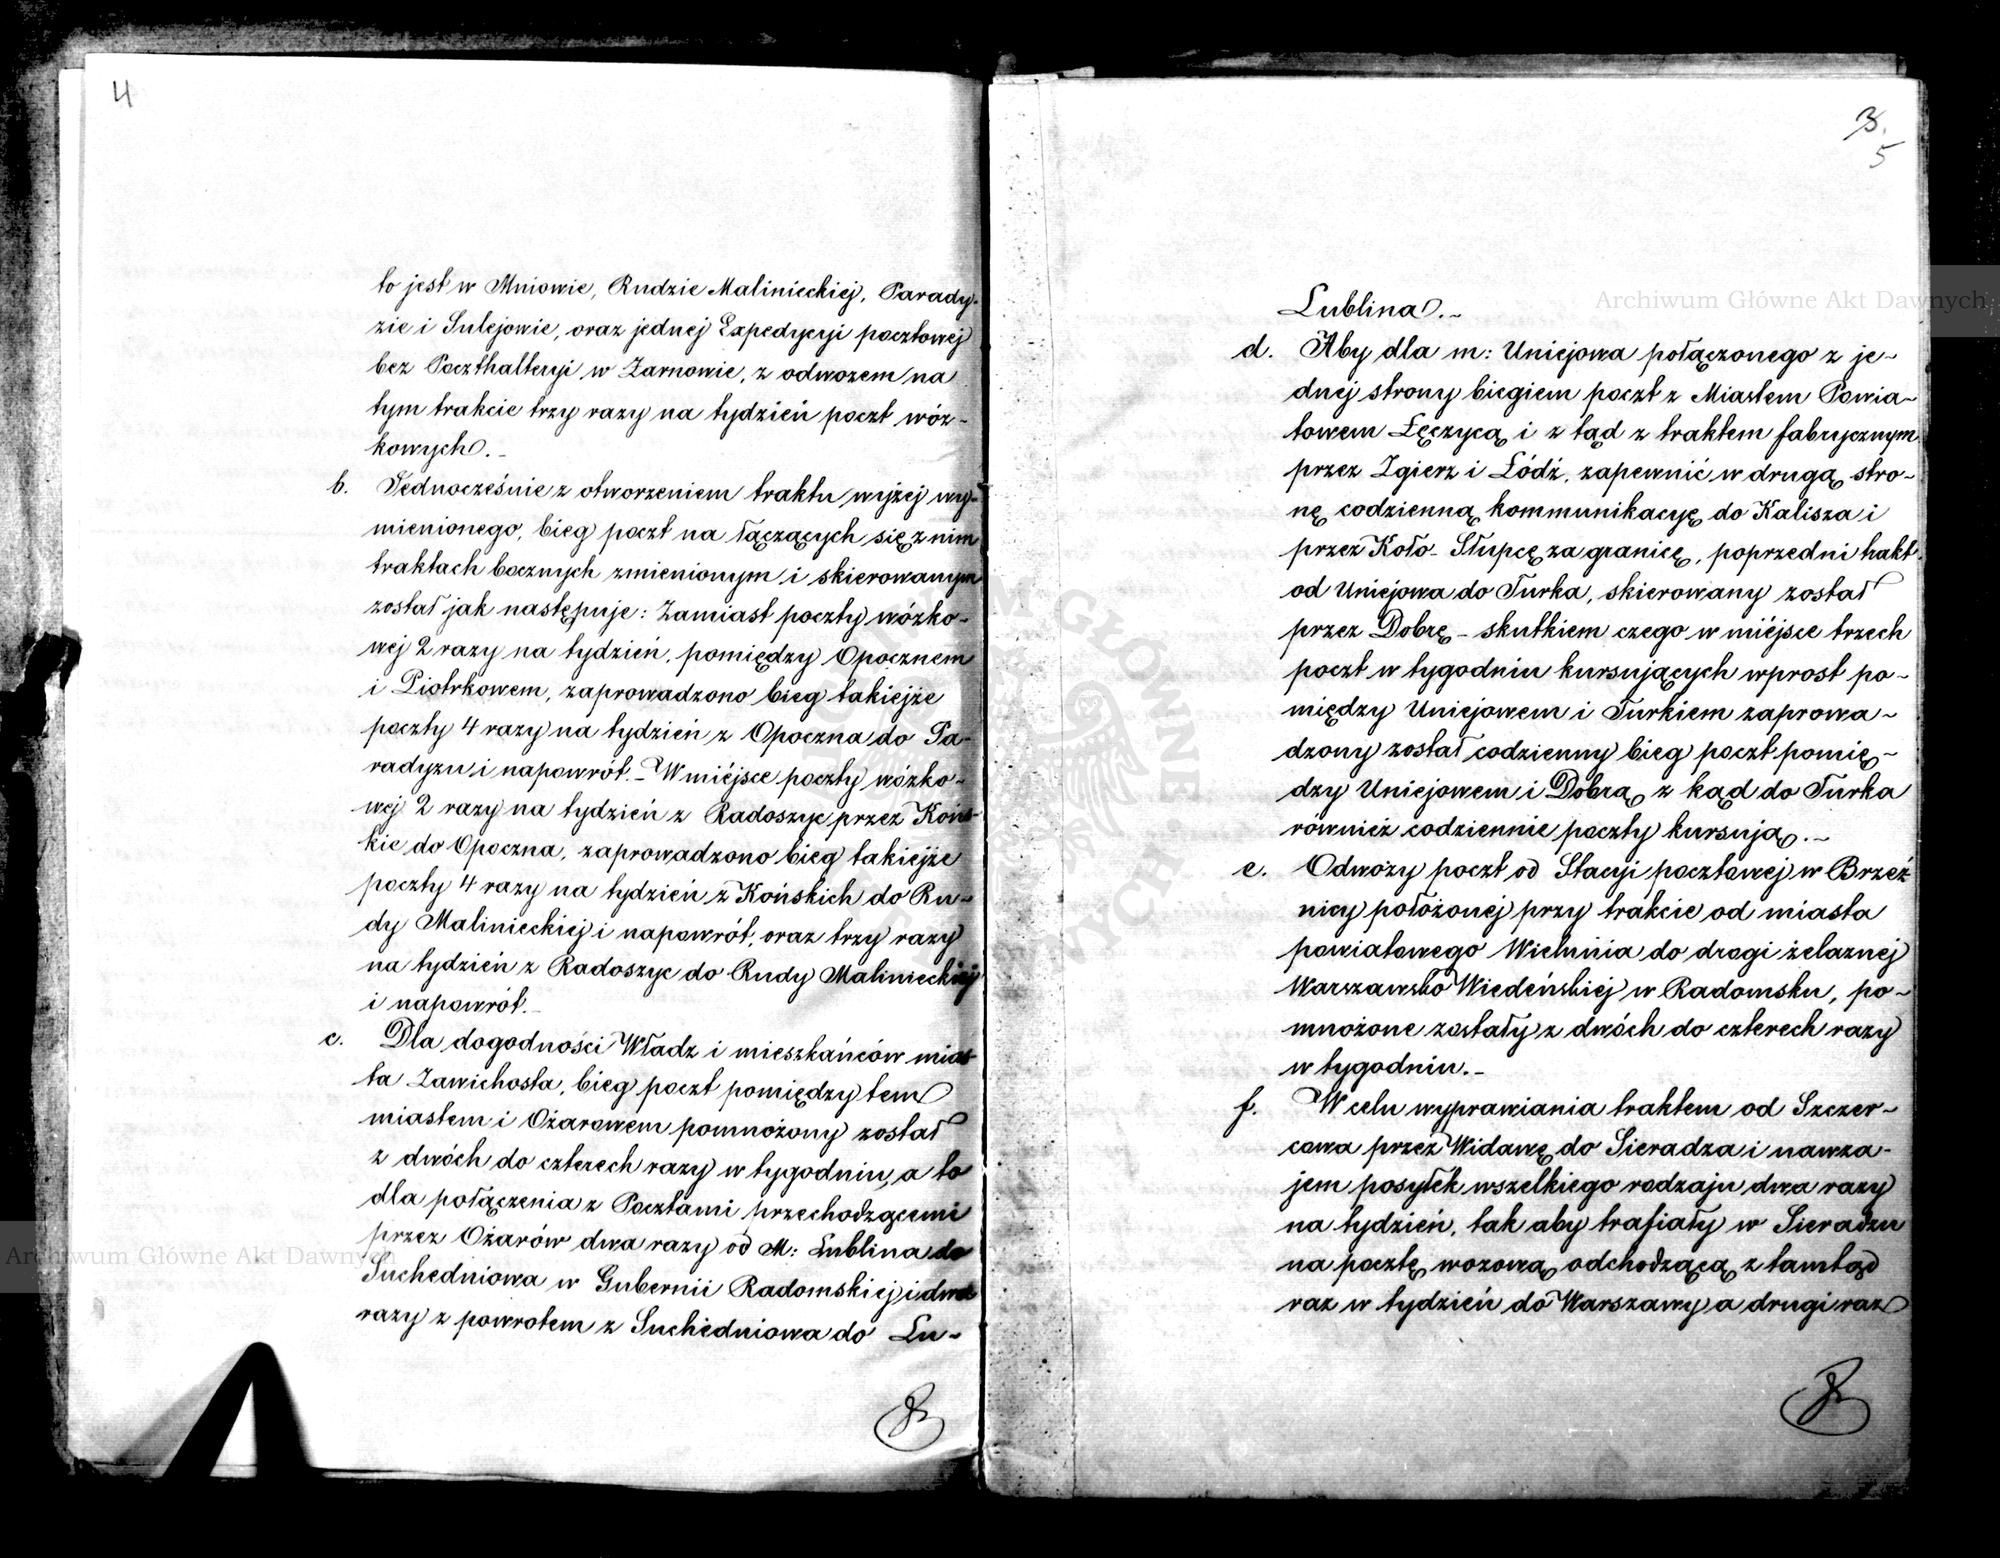 4
to jest w Mniowie, Rudzie Malinieckiej, Parady-
zie i Sulejowie, oraz jednej Expedycyi pocztowej
bez Poczthalteryi w Żarnowie, z odwozem na
tym trakcie trzy razy na tydzień poczt wóz-
kowych.-
b. Jednocześnie z otworzeniem traktu wyżej wy-
mienionego, bieg poczt na łączących się z nim
traktach bocznych zmienionym i skierowanym
został jak następuje: Zamiast poczty wózko-
wej 2 razy na tydzień, pomiędzy Opocznem
i Piotrkowem, zaprowadzono bieg takiejże
poczty 4 razy na tydzień z Opoczna do Pa-
radyzu i napowrót.- W miéjsce poczty wózko-
wej 2 razy na tydzień z Radoszyc przez Końs-
kie do Opoczna, zaprowadzono bieg takiejże
poczty 4 razy na tydzień z Końskich do Ru-
dy Malinieckiej i napowrót, oraz trzy razy
na tydzień z Radoszyc do Rudy Malinieckiej
i napowrót.-
c. Dla dogodności Władz i mieszkańców mias-
ta Zawichosta, bieg poczt pomiędzy tem
miastem i Ożarowem pomnożony został
z dwóch do czterech razy w tygodniu, a to
dla połączenia z Pocztami przechodzącemi
przez Ożarów dwa razy od M: Lublina do
Suchedniowa w Gubernii Radomskiej i dwa
razy z powrotem z Suchedniowa do Lu-
3.
5
Lublina.-
d. Aby dla m: Uniejowa połączonego z je-
dnéj strony biegiem poczt z Miastem Powia-
towem Łęczycą i z tąd z traktem fabrycznym
przez Zgierz i Łódź, zapewnić w drugą stro-
nę codzienną kommunikacyę do Kalisza i
przez Koło - Słupcę za granicę, poprzedni trakt
od Uniejowa do Turka, skierowany został
przez Dobrę - skutkiem czego w miéjsce trzech
poczt w tygodniu kursujących wprost po-
między Uniejowem i Turkiem zaprowa-
dzony został codzienny bieg poczt pomię-
dzy Uniejowem i Dobrą, z kąd do Turka
również codziennie poczty kursują.-
e. Odwozy poczt od Stacyi pocztowej w Brzeź
nicy położonej przy trakcie od miasta
powiatowego Wielunia do drogi żelaznej
Warszawsko Wiedeńskiej w Radomsku, po-
mnożone zostały z dwóch do czterech razy
w tygodniu.-
f. W celu wyprawiania traktem od Szczer-
cowa przez Widawę do Sieradza i nawza-
jem posyłek wszelkiego rodzaju dwa razy
na tydzień, tak aby trafiały w Sieradzu
na pocztę wozową odchodzącą z tamtąd
raz w tydzień do Warszawy a drugi raz
Archiwum Główne Akt Dawnych
Archiwum Główne Akt Dawnych